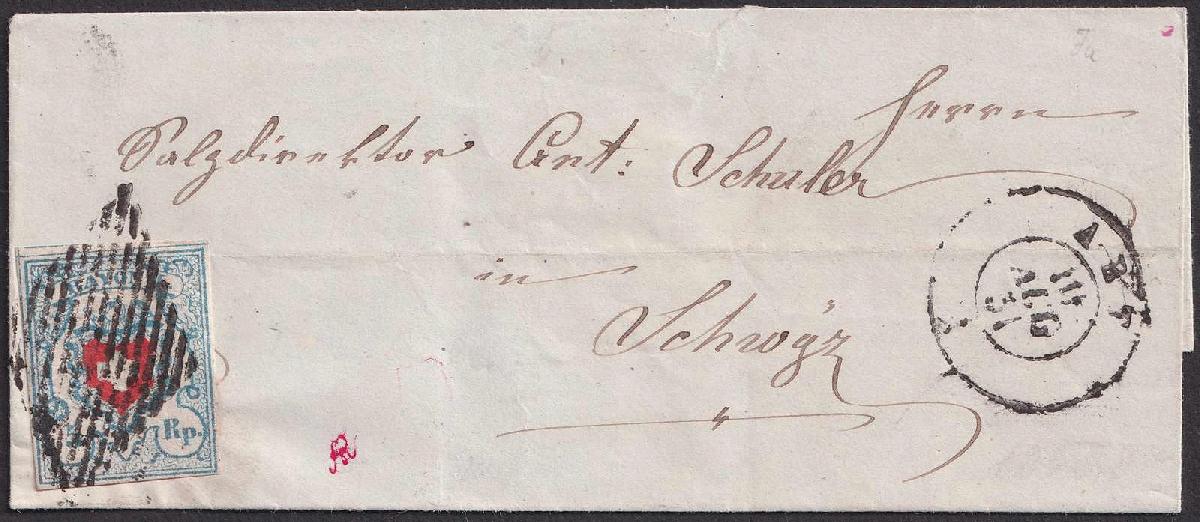 Herrn
Salzdirektor Ant: Schuler
in
Schwÿz
RAYON
Rp.
AUG
51